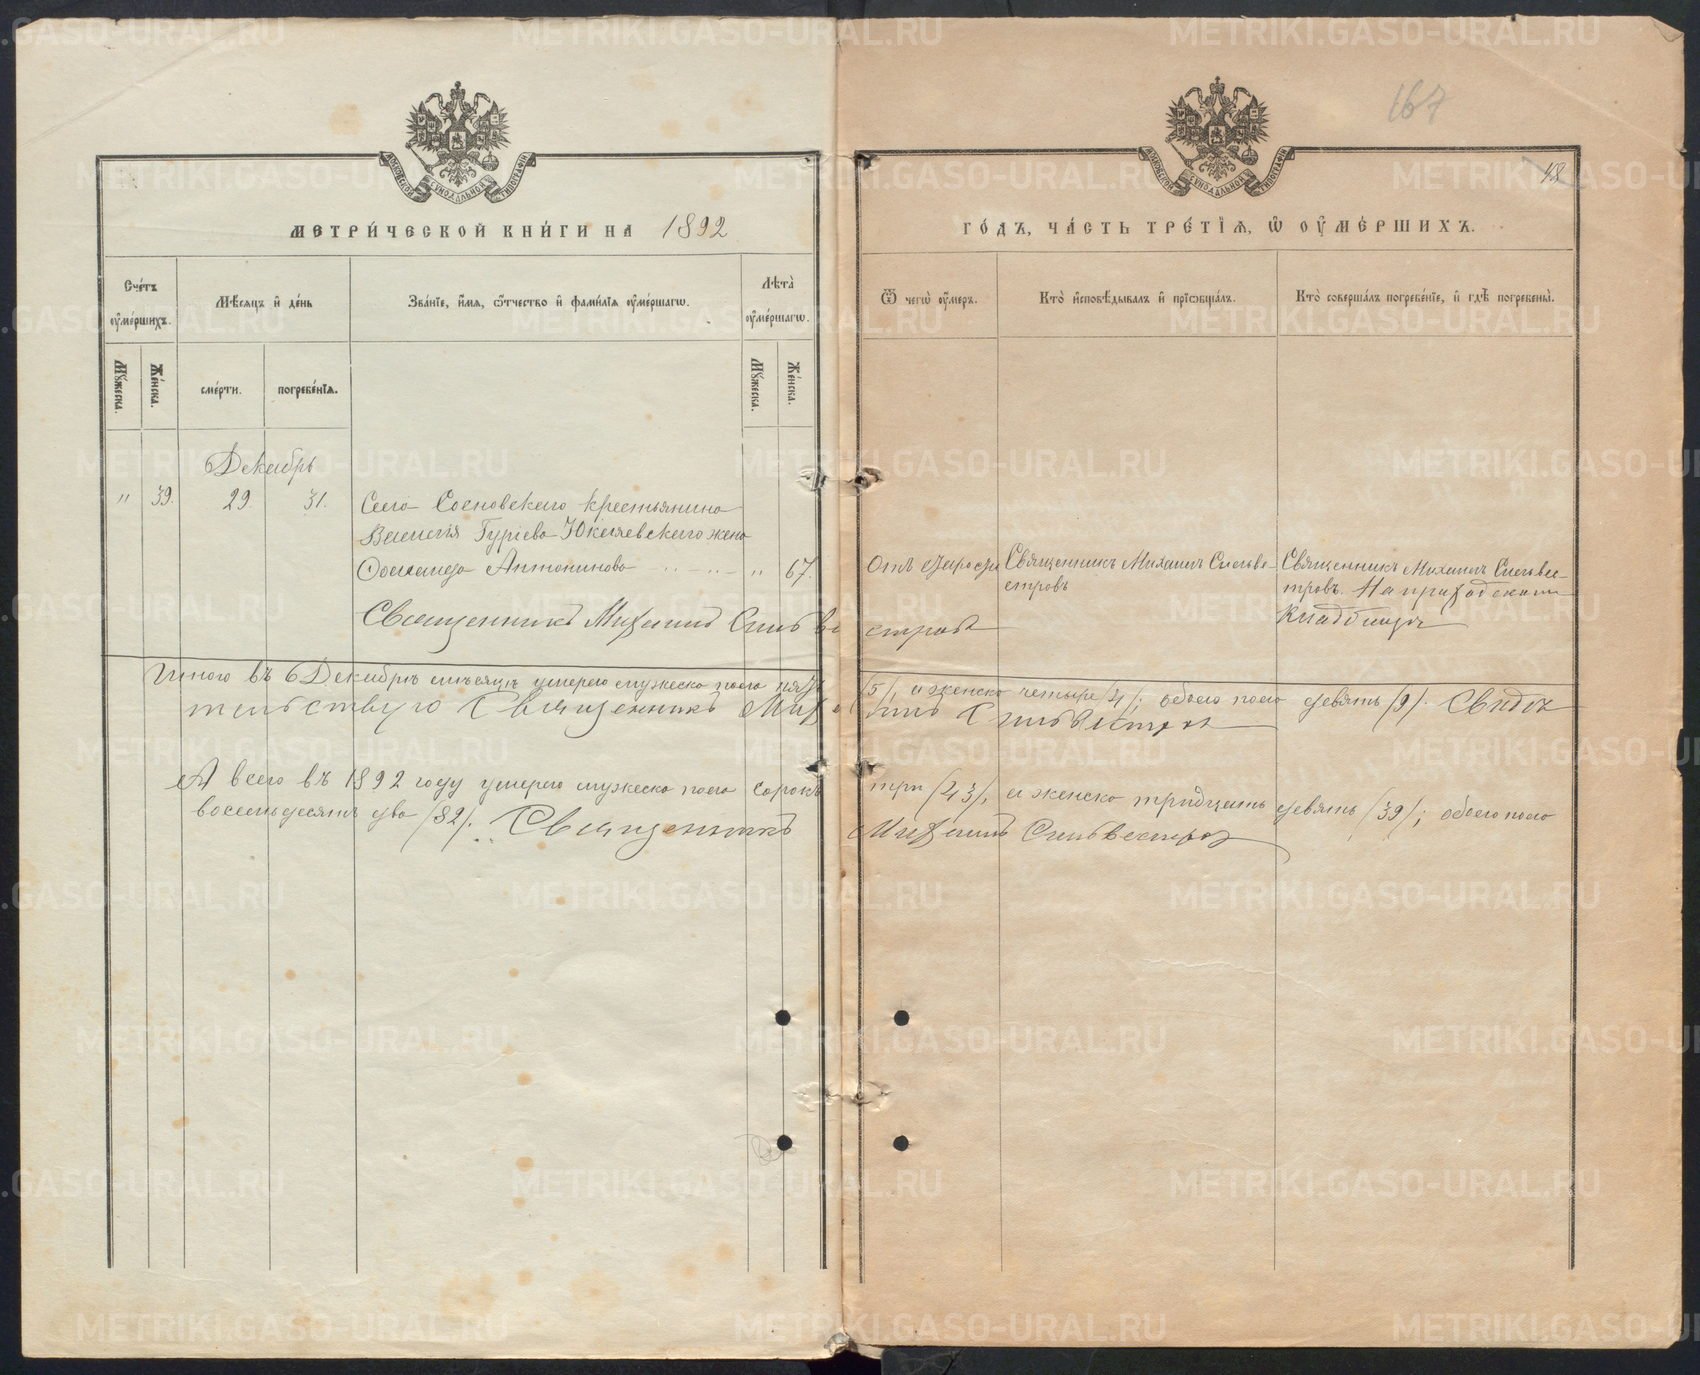 167
48
МОСКОВСКОЙ СѴНОДАЛЬНОЙ ТИПОГРАФІИ
МОСКОВСКОЙ СѴНОДАЛЬНОЙ ТИПОГРАФІИ
МЕТРИ́ЧЕСКОЙ КНИ́ГИ НА 1892
ГО́ДЪ, ЧА́СТЬ ТРЕ́ТІѦ, Ѡ҆ ОУ҆МЕ́РШИХЪ.
Сче́тъ оу҆ме́ршихъ.
Мꙋ́жеска.
Же́нска.
Мѣ́сѧцъ и҆ де́нь
сме́рти.
погребе́нїѧ.
Зва́нїе, и҆́мѧ, ѻ҆́тчество и҆ фами́лїѧ оу҆ме́ршагѡ.
Лѣ́та оу҆ме́ршагѡ.
Мꙋ́жеска.
Же́нска.
Ѿ чегѡ̀ оу҆́меръ.
Кто̀ и҆сповѣ́дывалъ и҆ прїѡбща́лъ.
Кто̀ соверша́лъ погребе́нїе, и҆ гдѣ̀ погребены̀.
Декабрь
" 39. 29. 31. Села Сосновскаго крестьянина
Василія Гуріева Юкляевскаго жена
Антонинова " 67. Отъ старости Священникъ Михаилъ Сильве- Священникъ Михаилъ Сильвес-
стровъ тровъ. На приходскомъ
Священникъ Михаилъ Сильвестровъ кладбищѣ
Итого въ Декабрѣ мѣсяцѣ умерло мужеска пола пять /5/, а женска четыре /4/; обоего пола девять /9/. Свидѣ
тельствую Священникъ Михаилъ Сильвестровъ
А всего въ 1892 году умерло мужеска пола сорокъ три /43/, а женска тридцать девять /39/; обоего пола
восемьдесятъ два /82/. Священникъ Михаилъ Сильвестровъ
METRIKI.GASO-URAL.RU